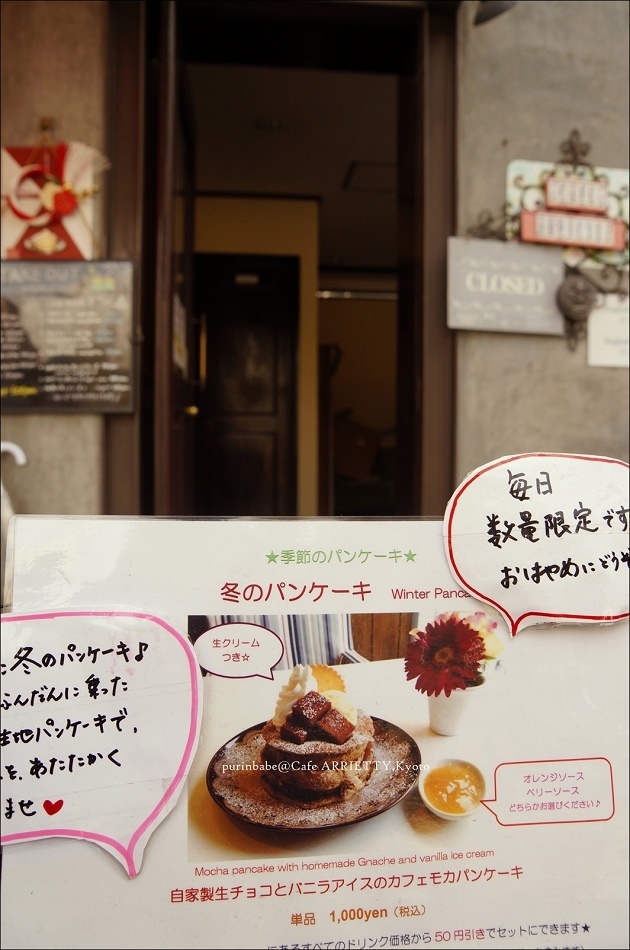 CLOSED
毎日
数量限定です
おはやめにどうぞ
★季節のパンケーキ★
冬のパンケーキ Winter Panca
生クリーム
つき☆
冬のパンケーキ♪
ふんだんに乗った
生地パンケーキで、
を、あたたかく
ませ♥
purinbabe@Cafe ARRIETTY,Kyoto
オレンジソース
ベリーソース
どちらかお選びください♪
Mocha pancake with homemade Gnache and vanilla ice cream
自家製生チョコとバニラアイスのカフェモカパンケーキ
単品 1,000yen（税込）
にあるすべてのドリンク価格から50円引きでセットにできます★